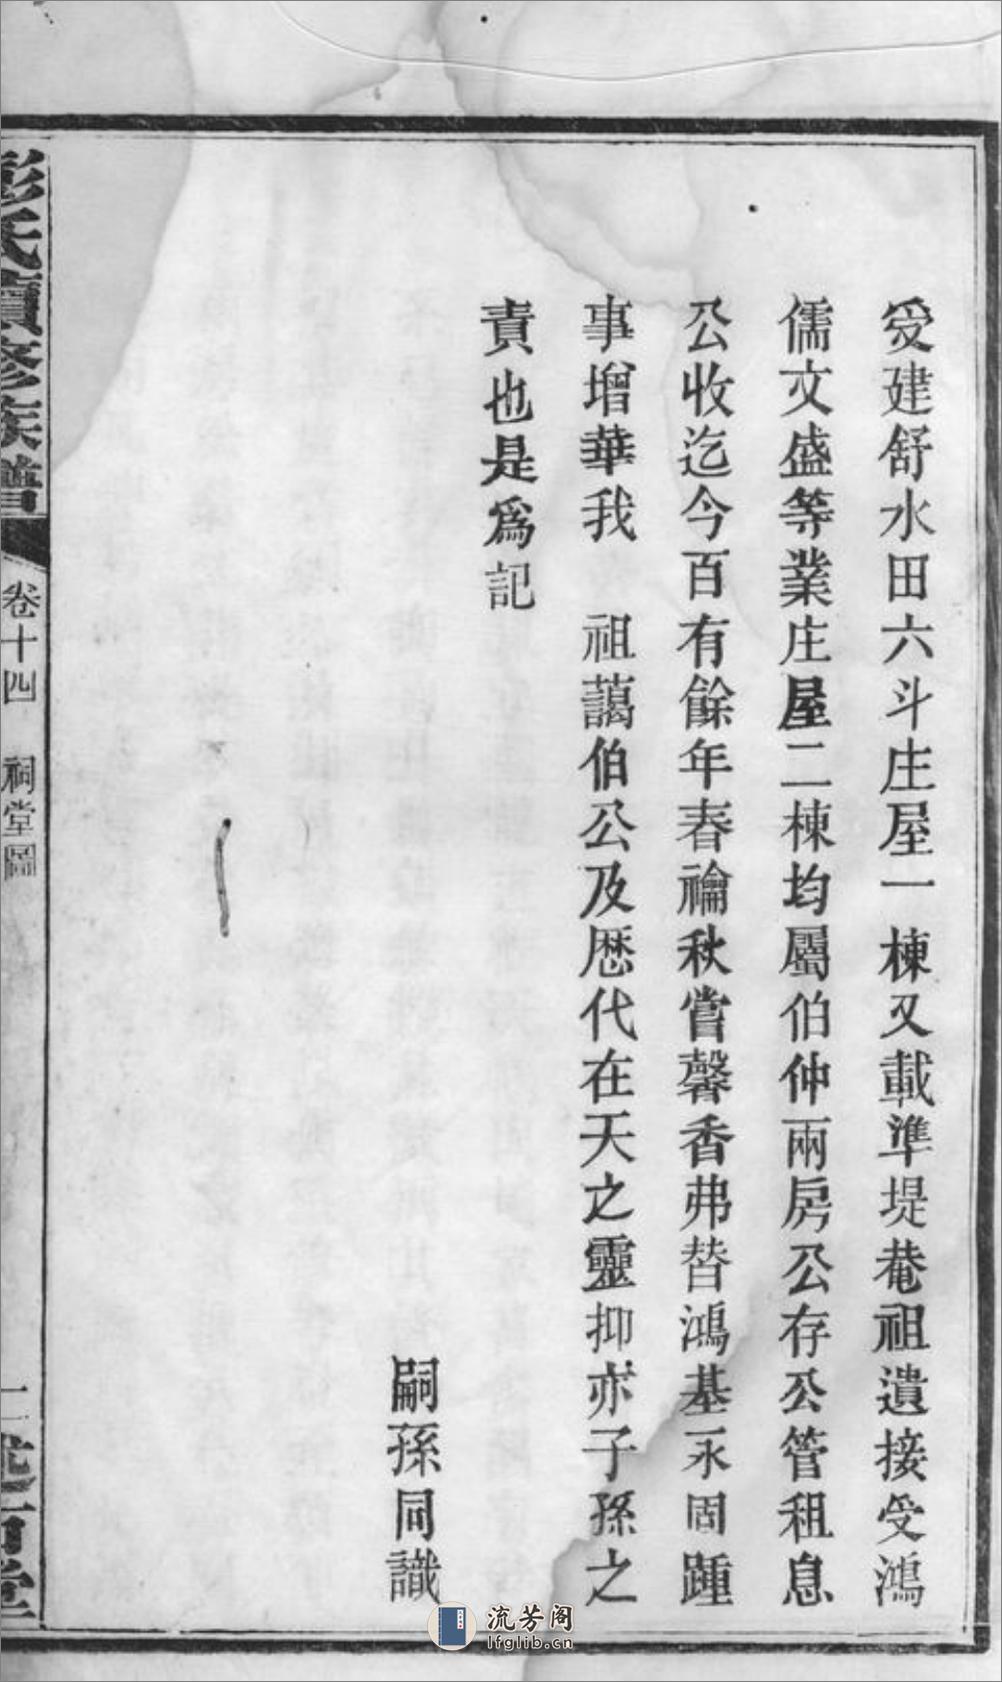 受建舒水田六斗庄屋一棟又載準堤菴祖遺接受鴻
儒文盛等業庄屋二棟均屬伯仲兩房公存公管租息
公收迄今百有餘年春禴秋嘗馨香弗替鴻基永固踵
事增華我　祖藹伯公及歷代在天之靈抑亦子孫之
責也是爲記
嗣孫同識
彭氏續修族譜
卷十四　祠堂圖
流芳阁
lfglib.cn